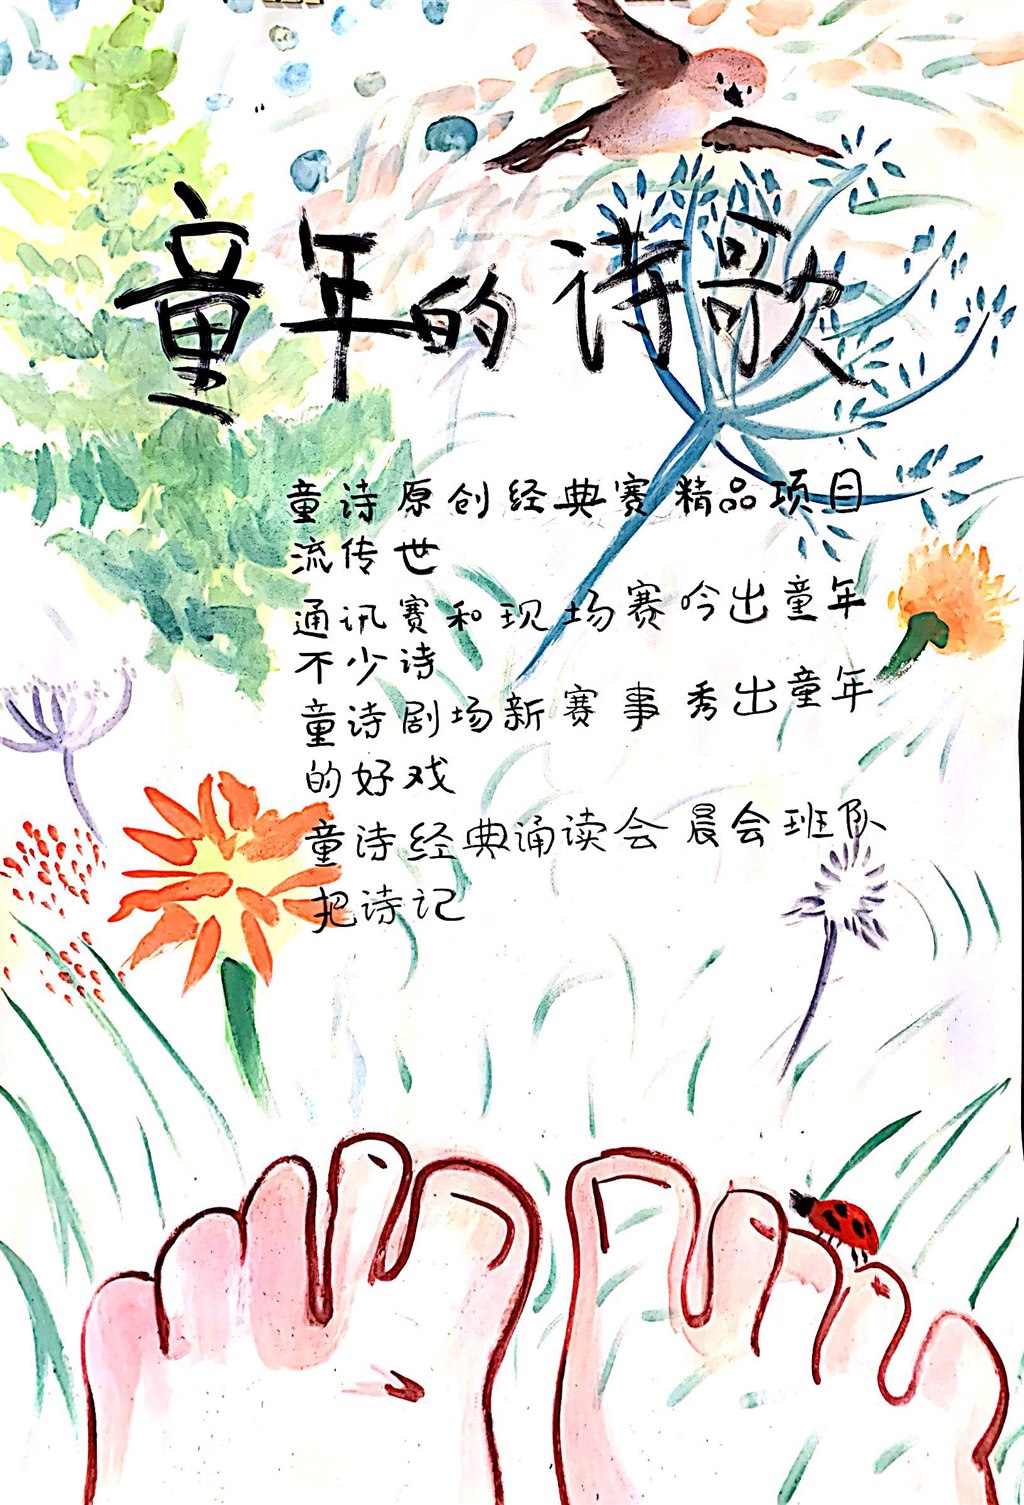 童年的诗歌
童诗原创经典赛精品项目
流传世
通讯赛和现场赛吟出童年
不少诗
童诗剧场新赛事秀出童年
的好戏
童诗经典诵读会晨会班队
把诗记